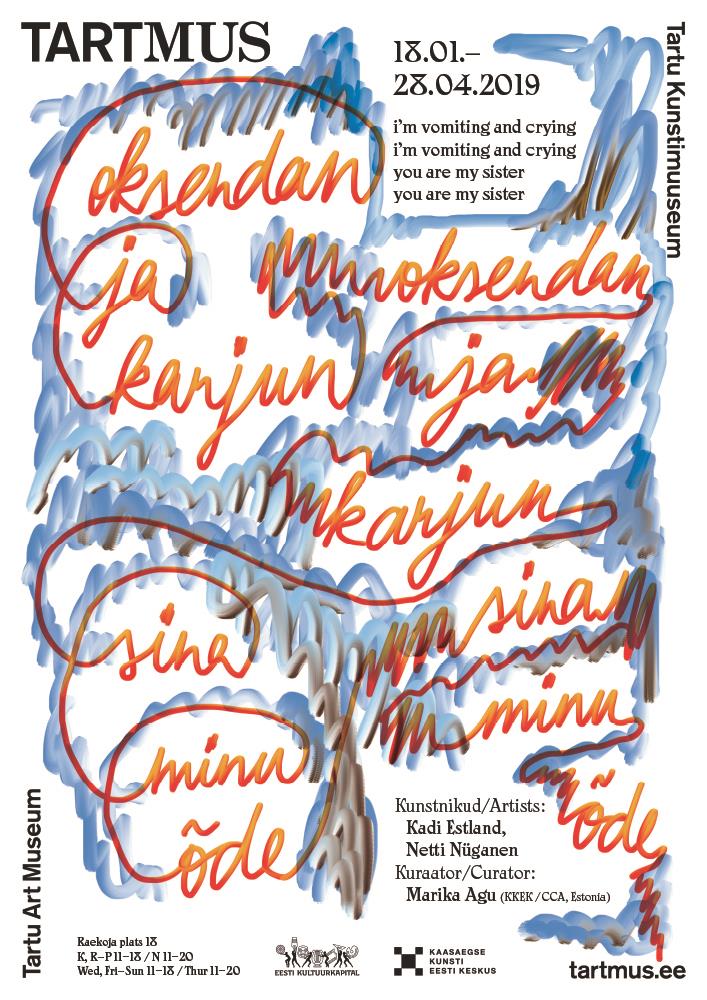 TARTMUS
18.01.–
28.04.2019
i'm vomiting and crying
i'm vomiting and crying
you are my sister
you are my sister
Tartu Kunstimuuseum
oksendan
ja
karjun
sina
minu
õde
oksendan
ja
karjun
sina
minu
õde
Kunstnikud/Artists:
Kadi Estland,
Netti Nüganen
Kuraator/Curator:
Marika Agu (KKEK/CCA, Estonia)
Tartu Art Museum
Raekoja plats 18
K, R–P 11–18 / N 11–20
Wed, Fri–Sun 11–18 / Thur 11–20
EESTI KULTUURKAPITAL
KAASAEGSE
KUNSTI
EESTI KESKUS
tartmus.ee